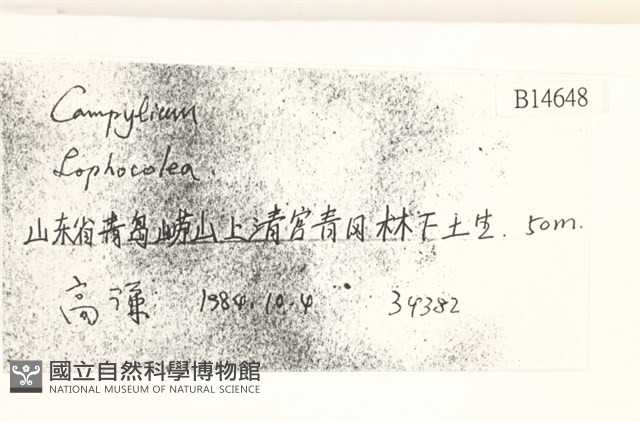 B14648
Campylium
Lophocolea
山东省青岛崂山上清宫青冈林下土生. 50m.
高谦 1984.10.4 34382
國立自然科學博物館
NATIONAL MUSEUM OF NATURAL SCIENCE